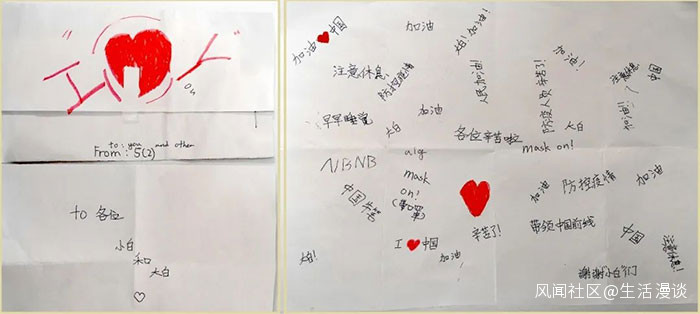 I ❤ Y
ou
to: you and other
From: 5(2)
to 各位
小白
和
大白
♡
加油❤中国
加油
大白!加油!
注意休息
防控疫情
人民加油!
防疫人员辛苦了!
加油!
注意休息
中国
早早睡觉
大白
加油
各位辛苦啦
大白
加油!
mask on!
NBNB
mask
on!
(带口罩)
中国
加油
防控疫情
加油
I ❤ 中国
辛苦了!
带领中国前线
中国
注意休息!
大白!
加油
谢谢小白们
风闻社区@生活漫谈